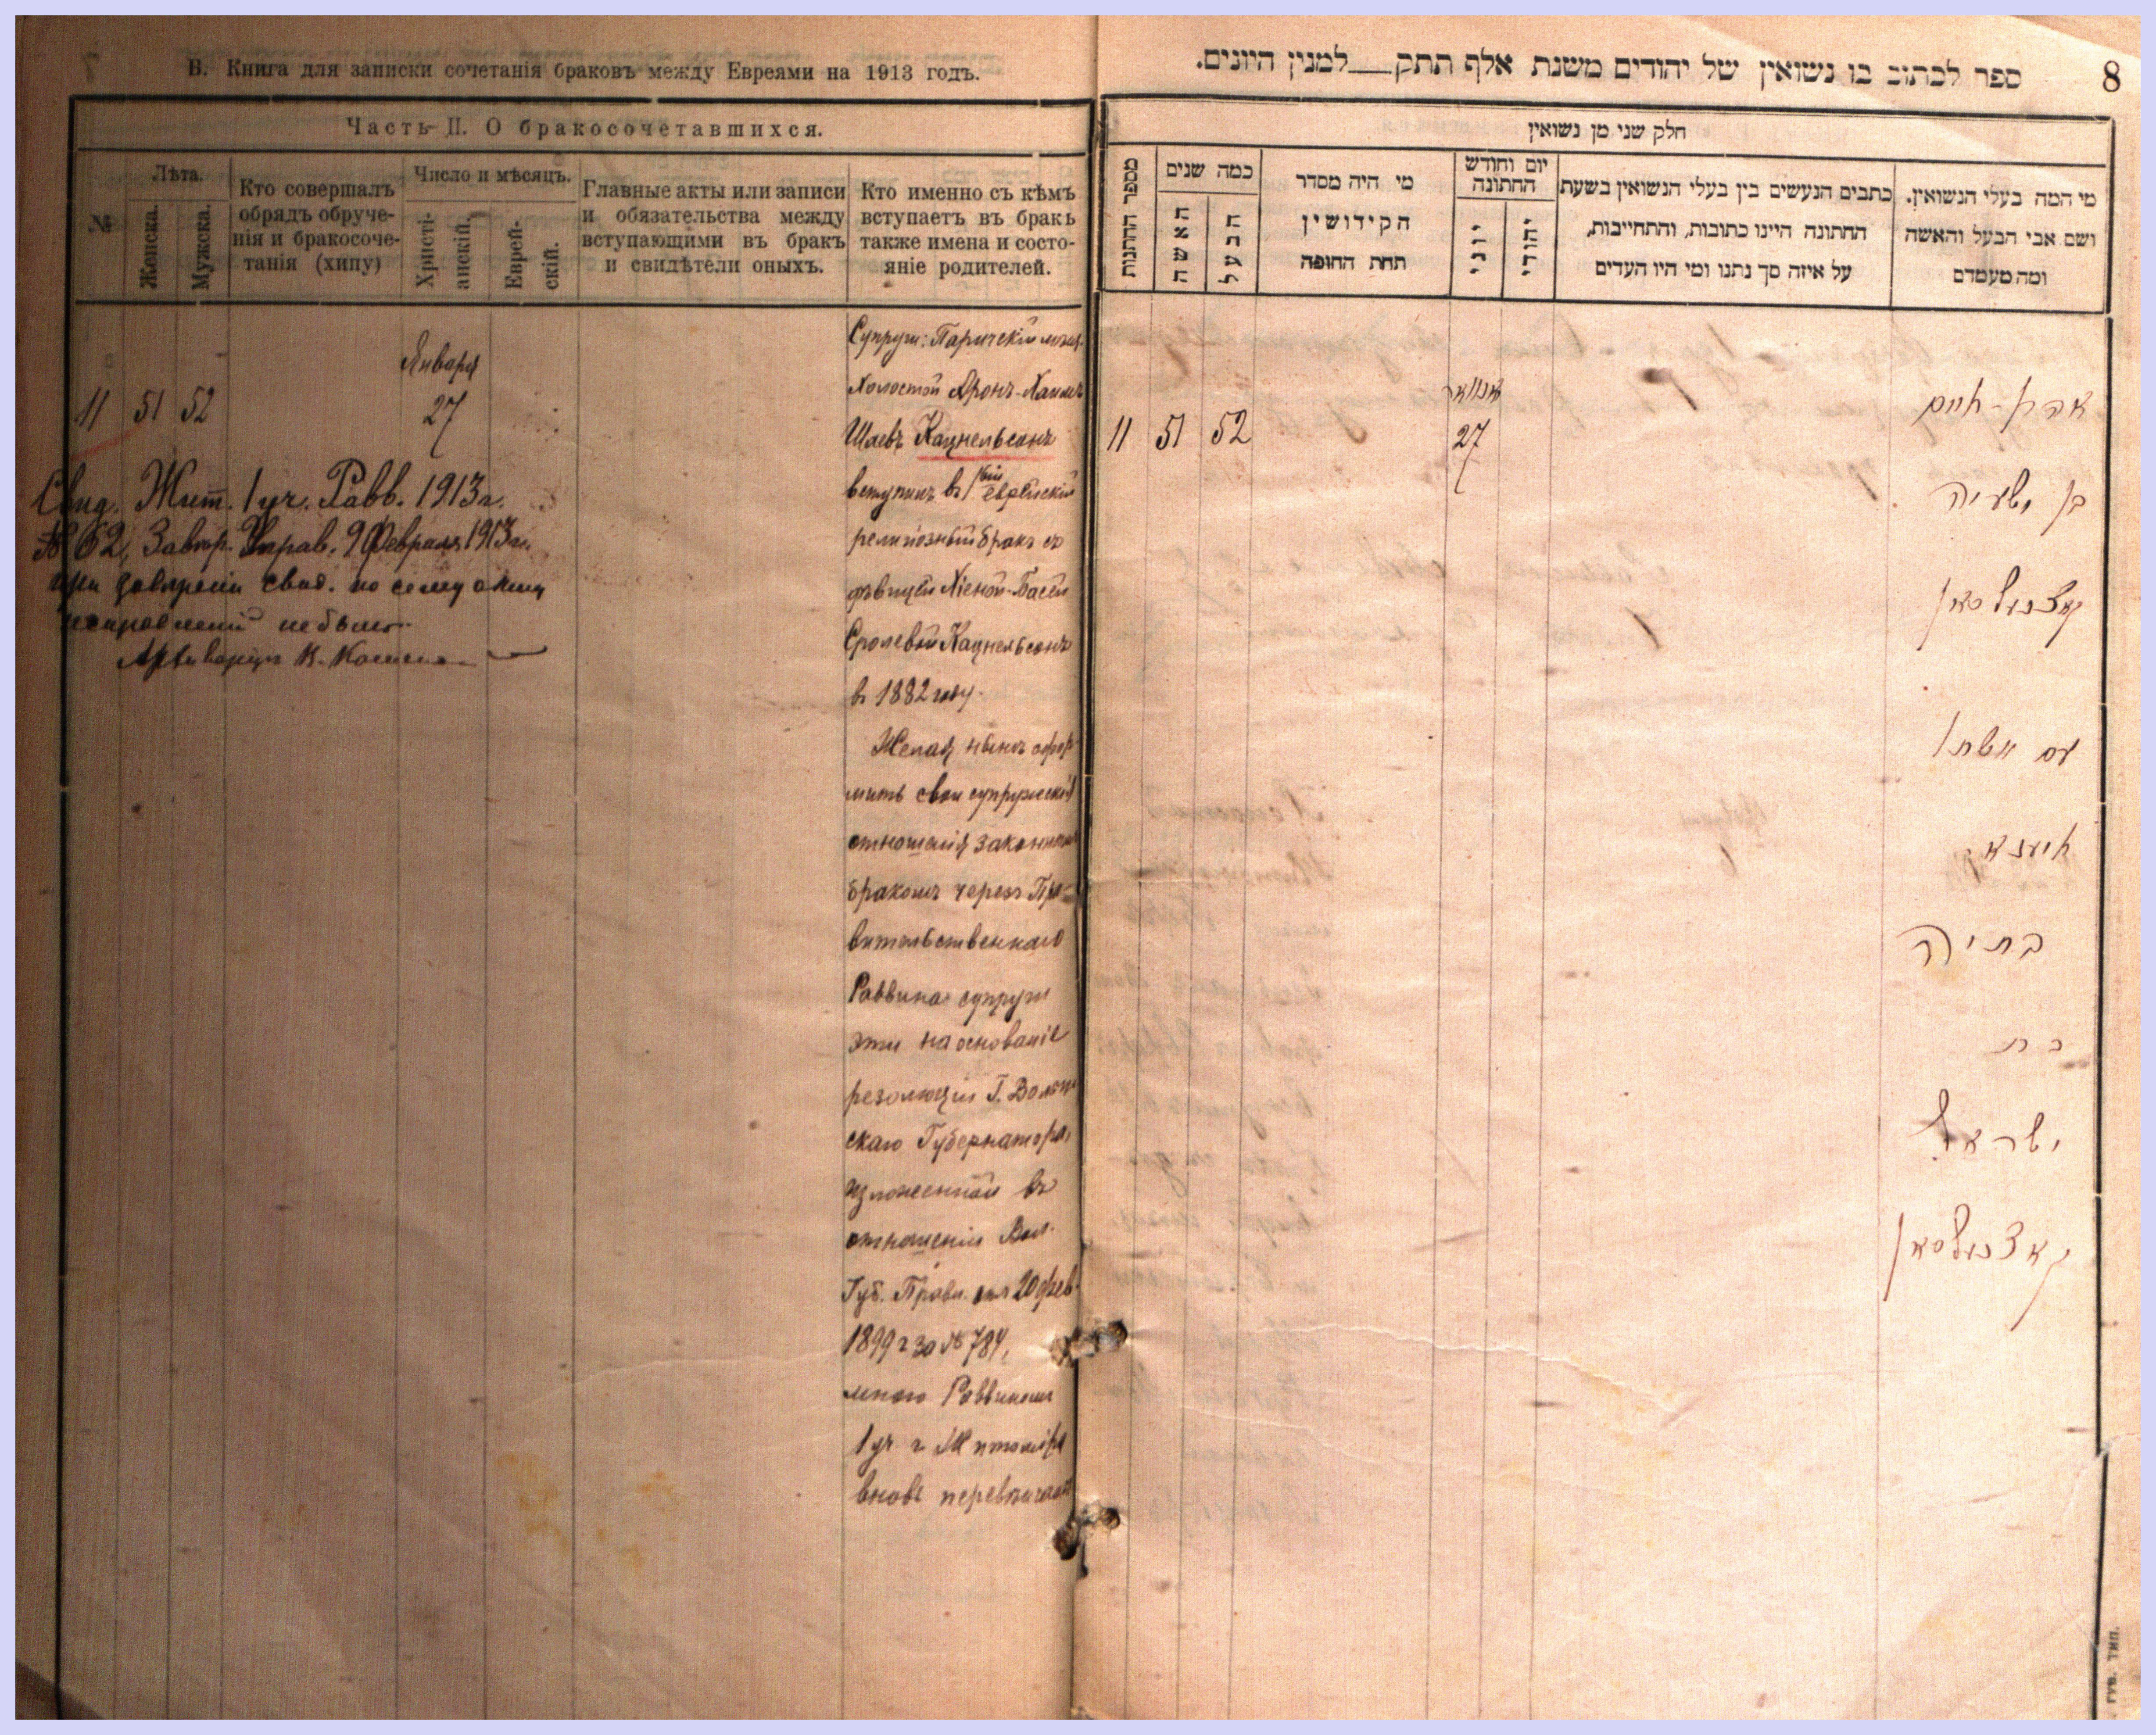 В. Книга для записки сочетанія браковъ между Евреями на 1913 годъ.
Часть II. О бракосочетавшихся.
№
Лѣта.
Женска.
Мужска.
Кто совершалъ
обрядъ обруче-
нія и бракосоче-
танія (хипу)
Число и мѣсяцъ.
Христі-
анскій.
Еврей-
скій.
Главные акты или записи
и обязательства между
вступающими въ бракъ
и свидѣтели оныхъ.
Кто именно съ кѣмъ
вступаетъ въ бракъ
также имена и состо-
яніе родителей.
Января
11 51 52 27
Свид. Жит. 1 уч. Равв. 1913 г.
№ 62, Управ. 9 Февраля 1913 г.
свид. по сему акту
не было.
Архиваріус К.
Супруги: Паричскій мѣщ.
Холостой Аронъ-Хаимъ
Шаевъ Кацнельсонъ
вступилъ въ 1ый еврейскій
религіозный бракъ съ
дѣвицей Хіеной-Басей
Сролевой Кацнельсонъ
въ 1882 году.
Желая нынѣ офор-
мить свои супружескія
отношенія законнымъ
бракомъ черезъ Пра-
вительственнаго
Раввина супруги
эти на основаніе
резолюціи Г. Волын-
скаго Губернатора,
изложенной въ
отношеніи Вол.
Губ. Правл. отъ 20 фев.
1899 г за № 784,
мною Раввиномъ
1 уч. г Житоміра
вновь перевѣнчаны
8
ספר לכתוב בו נשואין של יהודים משנת אלף תתק__למנין היונים.
חלק שני מן נשואין
מספר החתונות
כמה שנים
האשה
הבעל
מי היה מסדר
הקידושין
תחת החופה
יום וחודש
החתונה
יוני
יהודי
כתבים הנעשים בין בעלי הנשואין בשעת
החתונה היינו כתובות, והתחייבות,
על איזה סך נתנו ומי היו העדים
מי המה בעלי הנשואין.
ושם אבי הבעל והאשה
ומה מעמדם
יאנוואר
11 51 52 27
אהרן-חיים
בן ישעיה
קאצנעלסאן
עם אשתו
חיענא
בתיה
בת
ישראל
קאצנעלסאן
губ. тип.